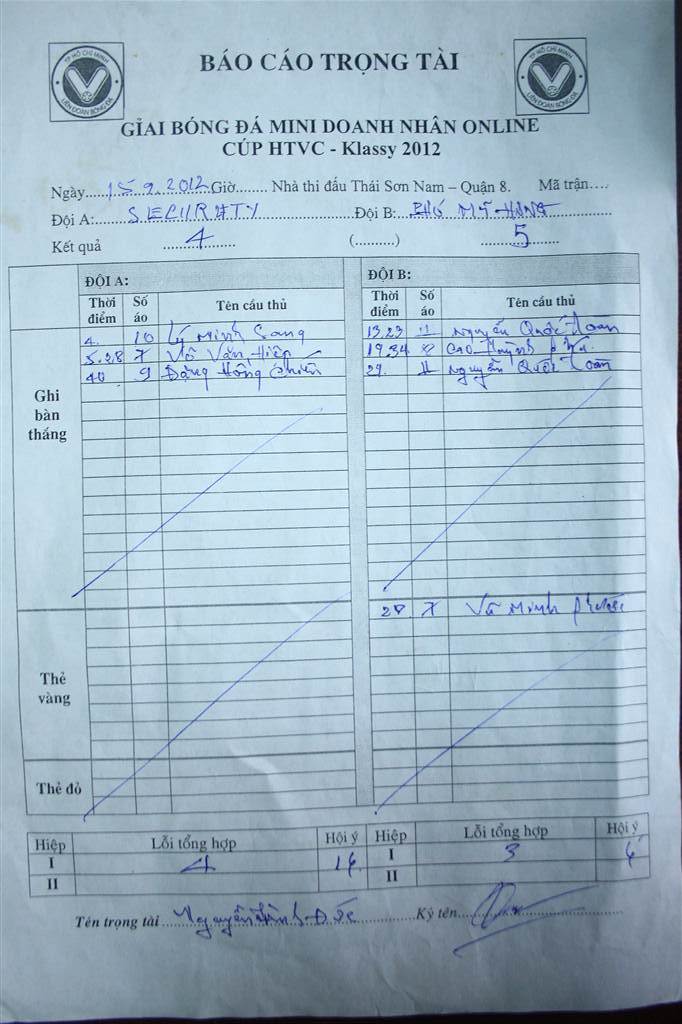 TP HỒ CHÍ MINH
LIÊN ĐOÀN BÓNG ĐÁ
BÁO CÁO TRỌNG TÀI
TP HỒ CHÍ MINH
LIÊN ĐOÀN BÓNG ĐÁ
GIẢI BÓNG ĐÁ MINI DOANH NHÂN ONLINE
CÚP HTVC - Klassy 2012
Ngày......15.9.2012 Giờ........ Nhà thi đấu Thái Sơn Nam – Quận 8. Mã trận....
Đội A: SECURATY Đội B: PHÚ MỸ HƯNG
Kết quả 4 (..........) 5
ĐỘI A: ĐỘI B:
Thời điểm Số áo Tên cầu thủ Thời điểm Số áo Tên cầu thủ
Ghi bàn thắng
4. 10 Lý Minh Sang 13.23 Nguyễn Quốc Toàn
5.28 7 Võ Văn Hiệp 19.34 Cao Huỳnh
40 9 Đặng Hồng Chiến 29. 11 Nguyễn Quốc Toàn
28 7 Vũ Minh Phước
Thẻ vàng
Thẻ đỏ
Hiệp Lỗi tổng hợp Hội ý Hiệp Lỗi tổng hợp Hội ý
I 4 I 3
II II
Tên trọng tài Nguyễn Đức Ký tên